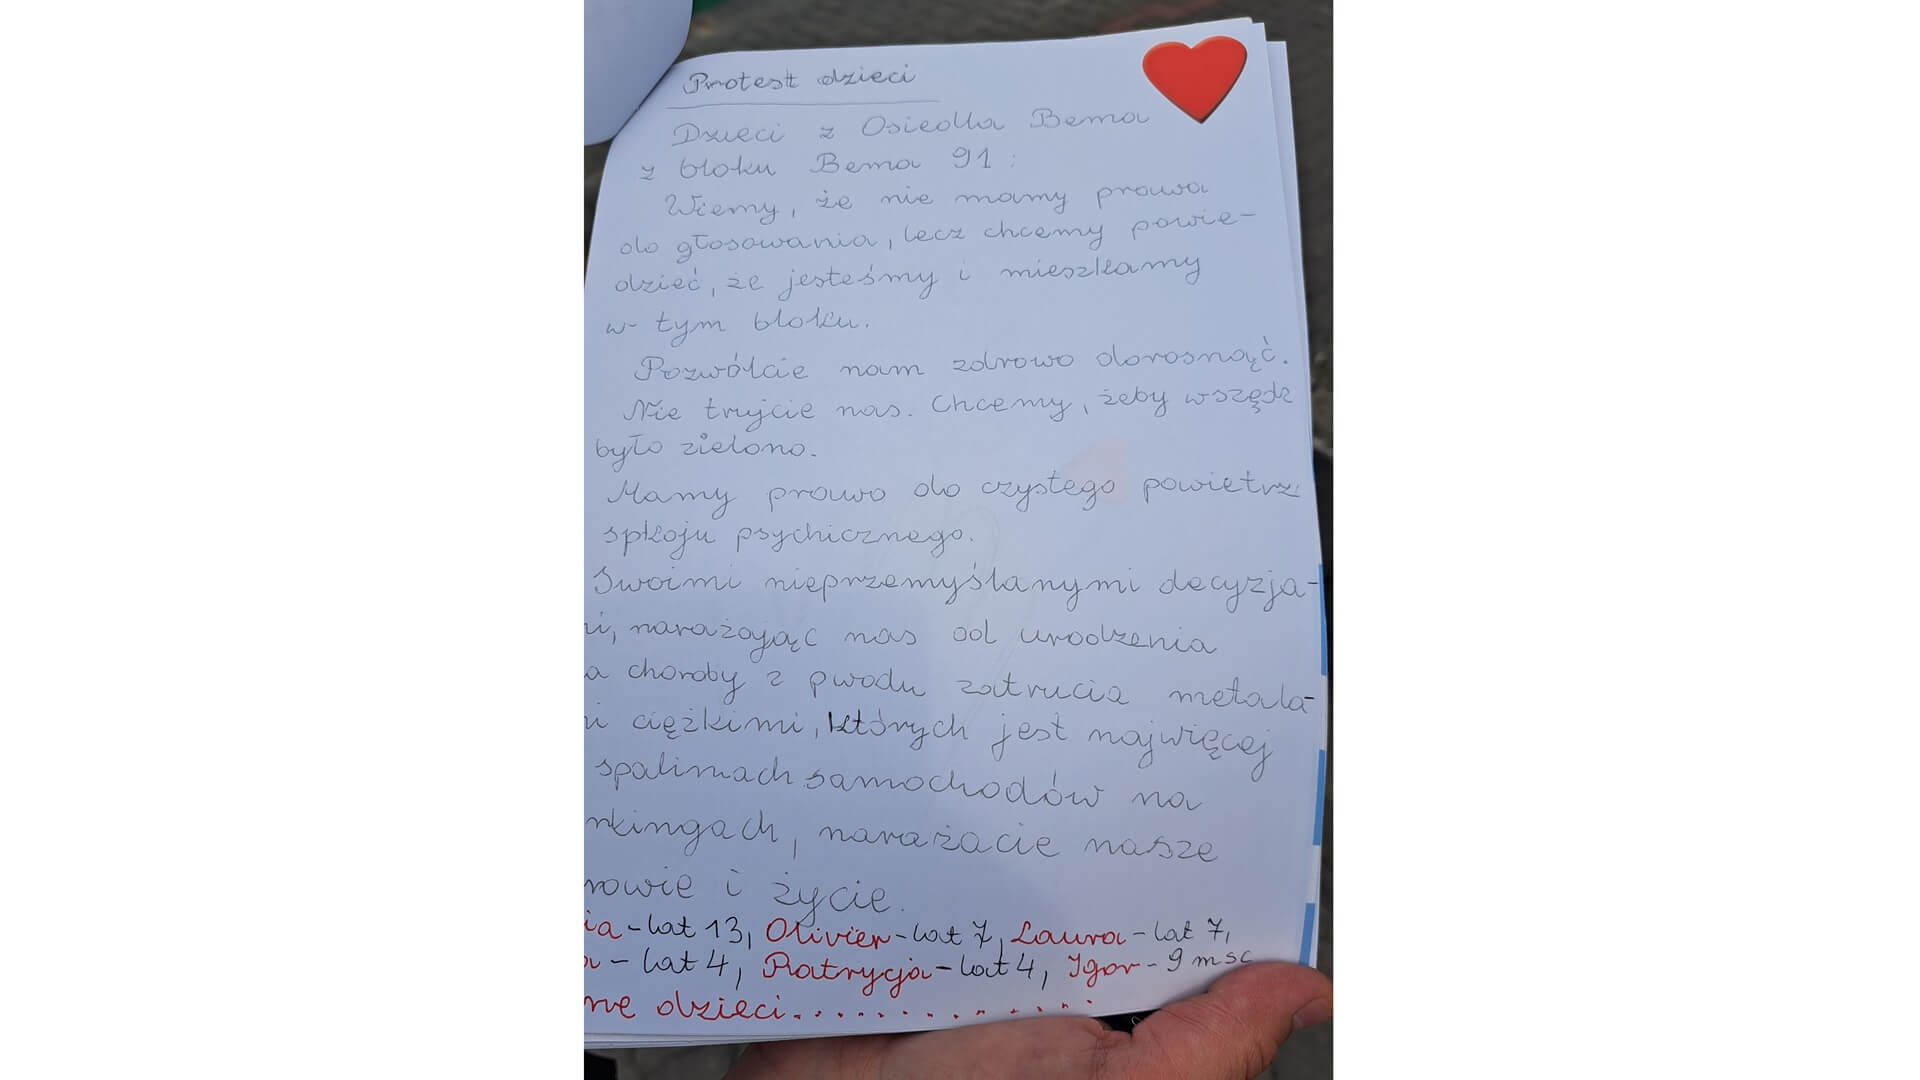 Protest dzieci
Dzieci z Osiedla Bema
z bloku Bema 91:
Wiemy, że nie mamy prawa
do głosowania, lecz chcemy powie-
dzieć, że jesteśmy i mieszkamy
w tym bloku.
Pozwólcie nam zdrowo dorosnąć.
Nie trujcie nas. Chcemy, żeby wszędz
było zielono.
Mamy prawo do czystego powietrz
spkoju psychicznego.
Swoimi nieprzemyślanymi decyzja-
i, narażając nas od urodzenia
a choroby z pwodu zatrucia metala-
i ciężkimi, których jest najwięcej
spalinach samochodów na
rkingach, narażacie nasze
rowie i życie.
ia - lat 13, Olivier - lat 7, Laura - lat 7,
a - lat 4, Patrycja - lat 4, Igor - 9 msc
ne dzieci..............